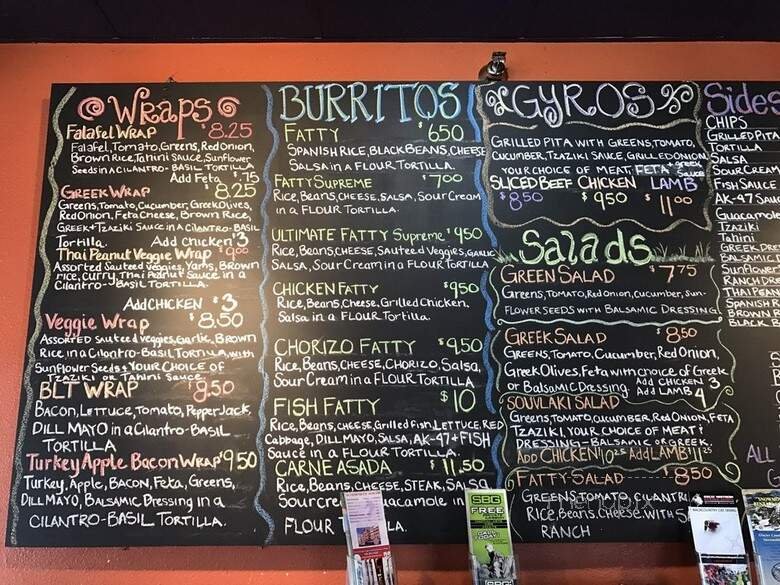 Wraps
Falafel Wrap $8.25
Falafel, Tomato, Greens, Red Onion,
Brown Rice, Tahini Sauce, Sunflower
Seeds in a Cilantro-Basil Tortilla
Add Feta $.75
Greek Wrap 8.25
Greens, Tomato, Cucumber, Greek Olives,
Red Onion, Feta Cheese, Brown Rice,
Greek + Tzaziki Sauce in a Cilantro-Basil
Tortilla. Add Chicken $3
Thai Peanut Veggie Wrap $9.00
Assorted Sauteed Veggies, Yams, Brown
rice, Curry, Thai Peanut Sauce in a
Cilantro-Basil Tortilla.
Add CHICKEN $3
Veggie Wrap $8.50
Assorted sauteed veggies, Garlic, Brown
Rice, in a Cilantro-Basil Tortilla, with
Sunflower Seeds + Your Choice of
Tzaziki or Tahini Sauce
BLT WRAP 9.50
Bacon, Lettuce, Tomato, Pepper Jack,
DILL MAYO in a Cilantro-Basil
TORTILLA
Turkey Apple Bacon Wrap $9.50
Turkey, Apple, BACON, Feta, Greens,
DILL MAYO, Balsamic Dressing in a
CILANTRO-BASIL TORTILLA.
BURRITOS
FATTY $6.50
SPANISH RICE, BLACK BEANS, CHEESE
Salsa in a FLOUR TORTILLA.
FATTY SUPREME $7.00
Rice, Beans, CHEESE, SALSA, Sour Cream
in a FLOUR TORTILLA.
ULTIMATE FATTY Supreme $9.50
Rice, Beans, CHEESE, Sauteed Veggies, GARLIC
SALSA, Sour Cream in a FLOUR TORTILLA
CHICKEN FATTY $9.50
Rice, Beans, Cheese, Grilled Chicken,
Salsa in a FLOUR Tortilla.
CHORIZO FATTY $9.50
Rice, Beans, CHEESE, CHORIZO, Salsa,
Sour Cream in a FLOUR TORTILLA
FISH FATTY $10
Rice, Beans, CHEESE, Grilled fish, LETTUCE, RED
Cabbage, DILL MAYO, SALSA, AK-47 + FISH
Sauce in a FLOUR TORTILLA.
CARNE ASADA $11.50
Rice, Beans, CHEESE, STEAK, SALSA
Sour cre Guacamole in
FLOUR LA.
GYROS
GRILLED PITA WITH GREENS, TOMATO,
CUCUMBER, TZAZIKI SAUCE, GRILLED ONION
YOUR CHOICE OF MEAT, FETA + Greek Sauce
SLICED BEEF CHICKEN LAMB
$8.50 $9.50 $11.00
Salads
GREEN SALAD $7.75
Greens, TOMATO, Red Onion, Cucumber, Sun-
FLOWER SEEDS WITH BALSAMIC DRESSING
GREEK SALAD $8.50
GREENS, TOMATO, Cucumber, Red Onion,
Greek Olives, Feta with choice of Greek
or Balsamic Dressing. Add CHICKEN 3
Add LAMB 4
SOUVLAKI SALAD
Greens, TOMATO, CUCUMBER, RED ONION, FETA
TZAZIKI, YOUR CHOICE OF MEAT +
DRESSING - BALSAMIC OR GREEK.
Add CHICKEN 10.25 Add LAMB $11.25
FATTY SALAD $8.50
GREENS, TOMATO, CILANTRO
Rice, Beans, CHEESE WITH SA
RANCH
Sides
CHIPS
GRILLED PITA
TORTILLA
SALSA
SOUR CREAM
FISH SAUCE
AK-47 SAU
Guacamole
Tzaziki
Tahini
GREEK DRE
BALSAMIC D
SUNFLOWER
RANCH DRE
THAI PEAN
SPANISH
BROWN R
BLACK B
ALL
SBG
FREE